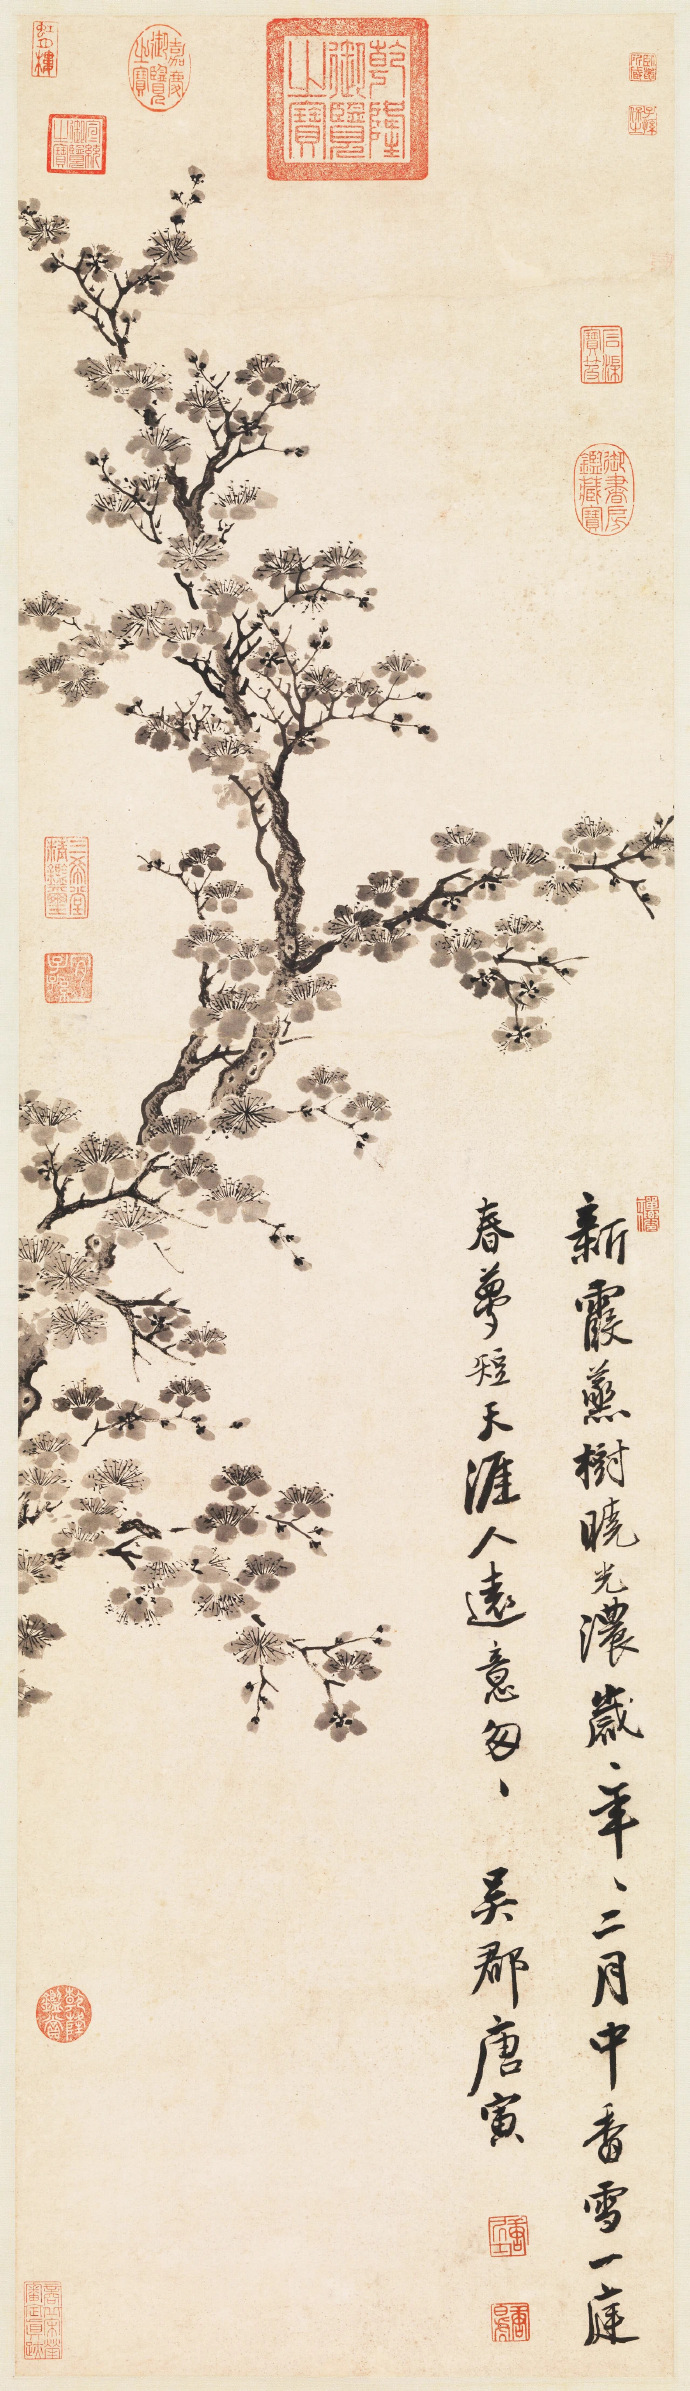 石渠寶笈
御書房鑑藏寶
乾隆御覽之寶
嘉慶御覽之寶
宣統御覽之寶
新霞蒸樹曉光濃歲、年、二月中香雪一庭
春夢短天涯人遠意匆、
吳郡唐寅
三希堂精鑑璽
宜子孫
乾隆鑑賞
商丘宋犖審定真蹟